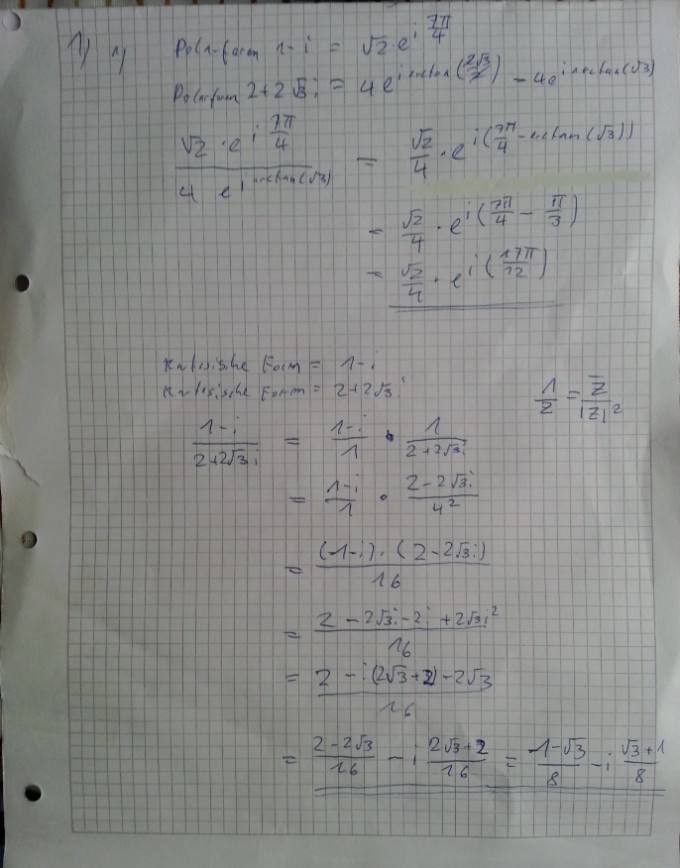 1) a) Polarform 1-i = √2·e^(i 7π/4)
Polarform 2+2√3i = 4e^(i arctan(2√3/2)) - 4e^(i arctan(√3))
(√2·e^(i 7π/4))/(4 e^(i arctan(√3))) = √2/4 · e^(i(7π/4 - arctan(√3)))
= √2/4 · e^(i(7π/4 - π/3))
= √2/4 · e^(i(17π/12))
Kartesische Form = 1-i
Kartesische Form = 2+2√3i
1/z = z̅/|z|²
(1-i)/(2+2√3i) = (1-i)/1 · 1/(2+2√3i)
= (1-i)/1 · (2-2√3i)/4²
= ((1-i)·(2-2√3i))/16
= (2-2√3i-2i+2√3i²)/16
= (2-i(2√3+2)-2√3)/16
= (2-2√3)/16 - i (2√3+2)/16 = (1-√3)/8 - i (√3+1)/8